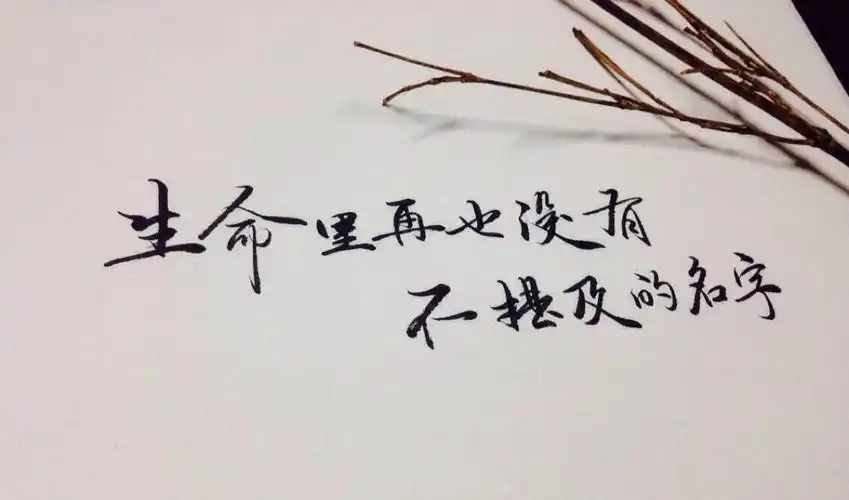 生命里再也没有
不提及的名字